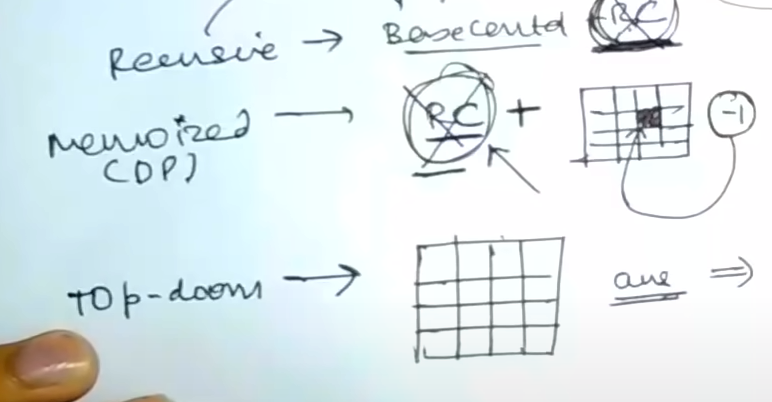 Recursive → Base condtd + RC
Memoized → RC + -1
(DP)
Top-down → ans ⇒